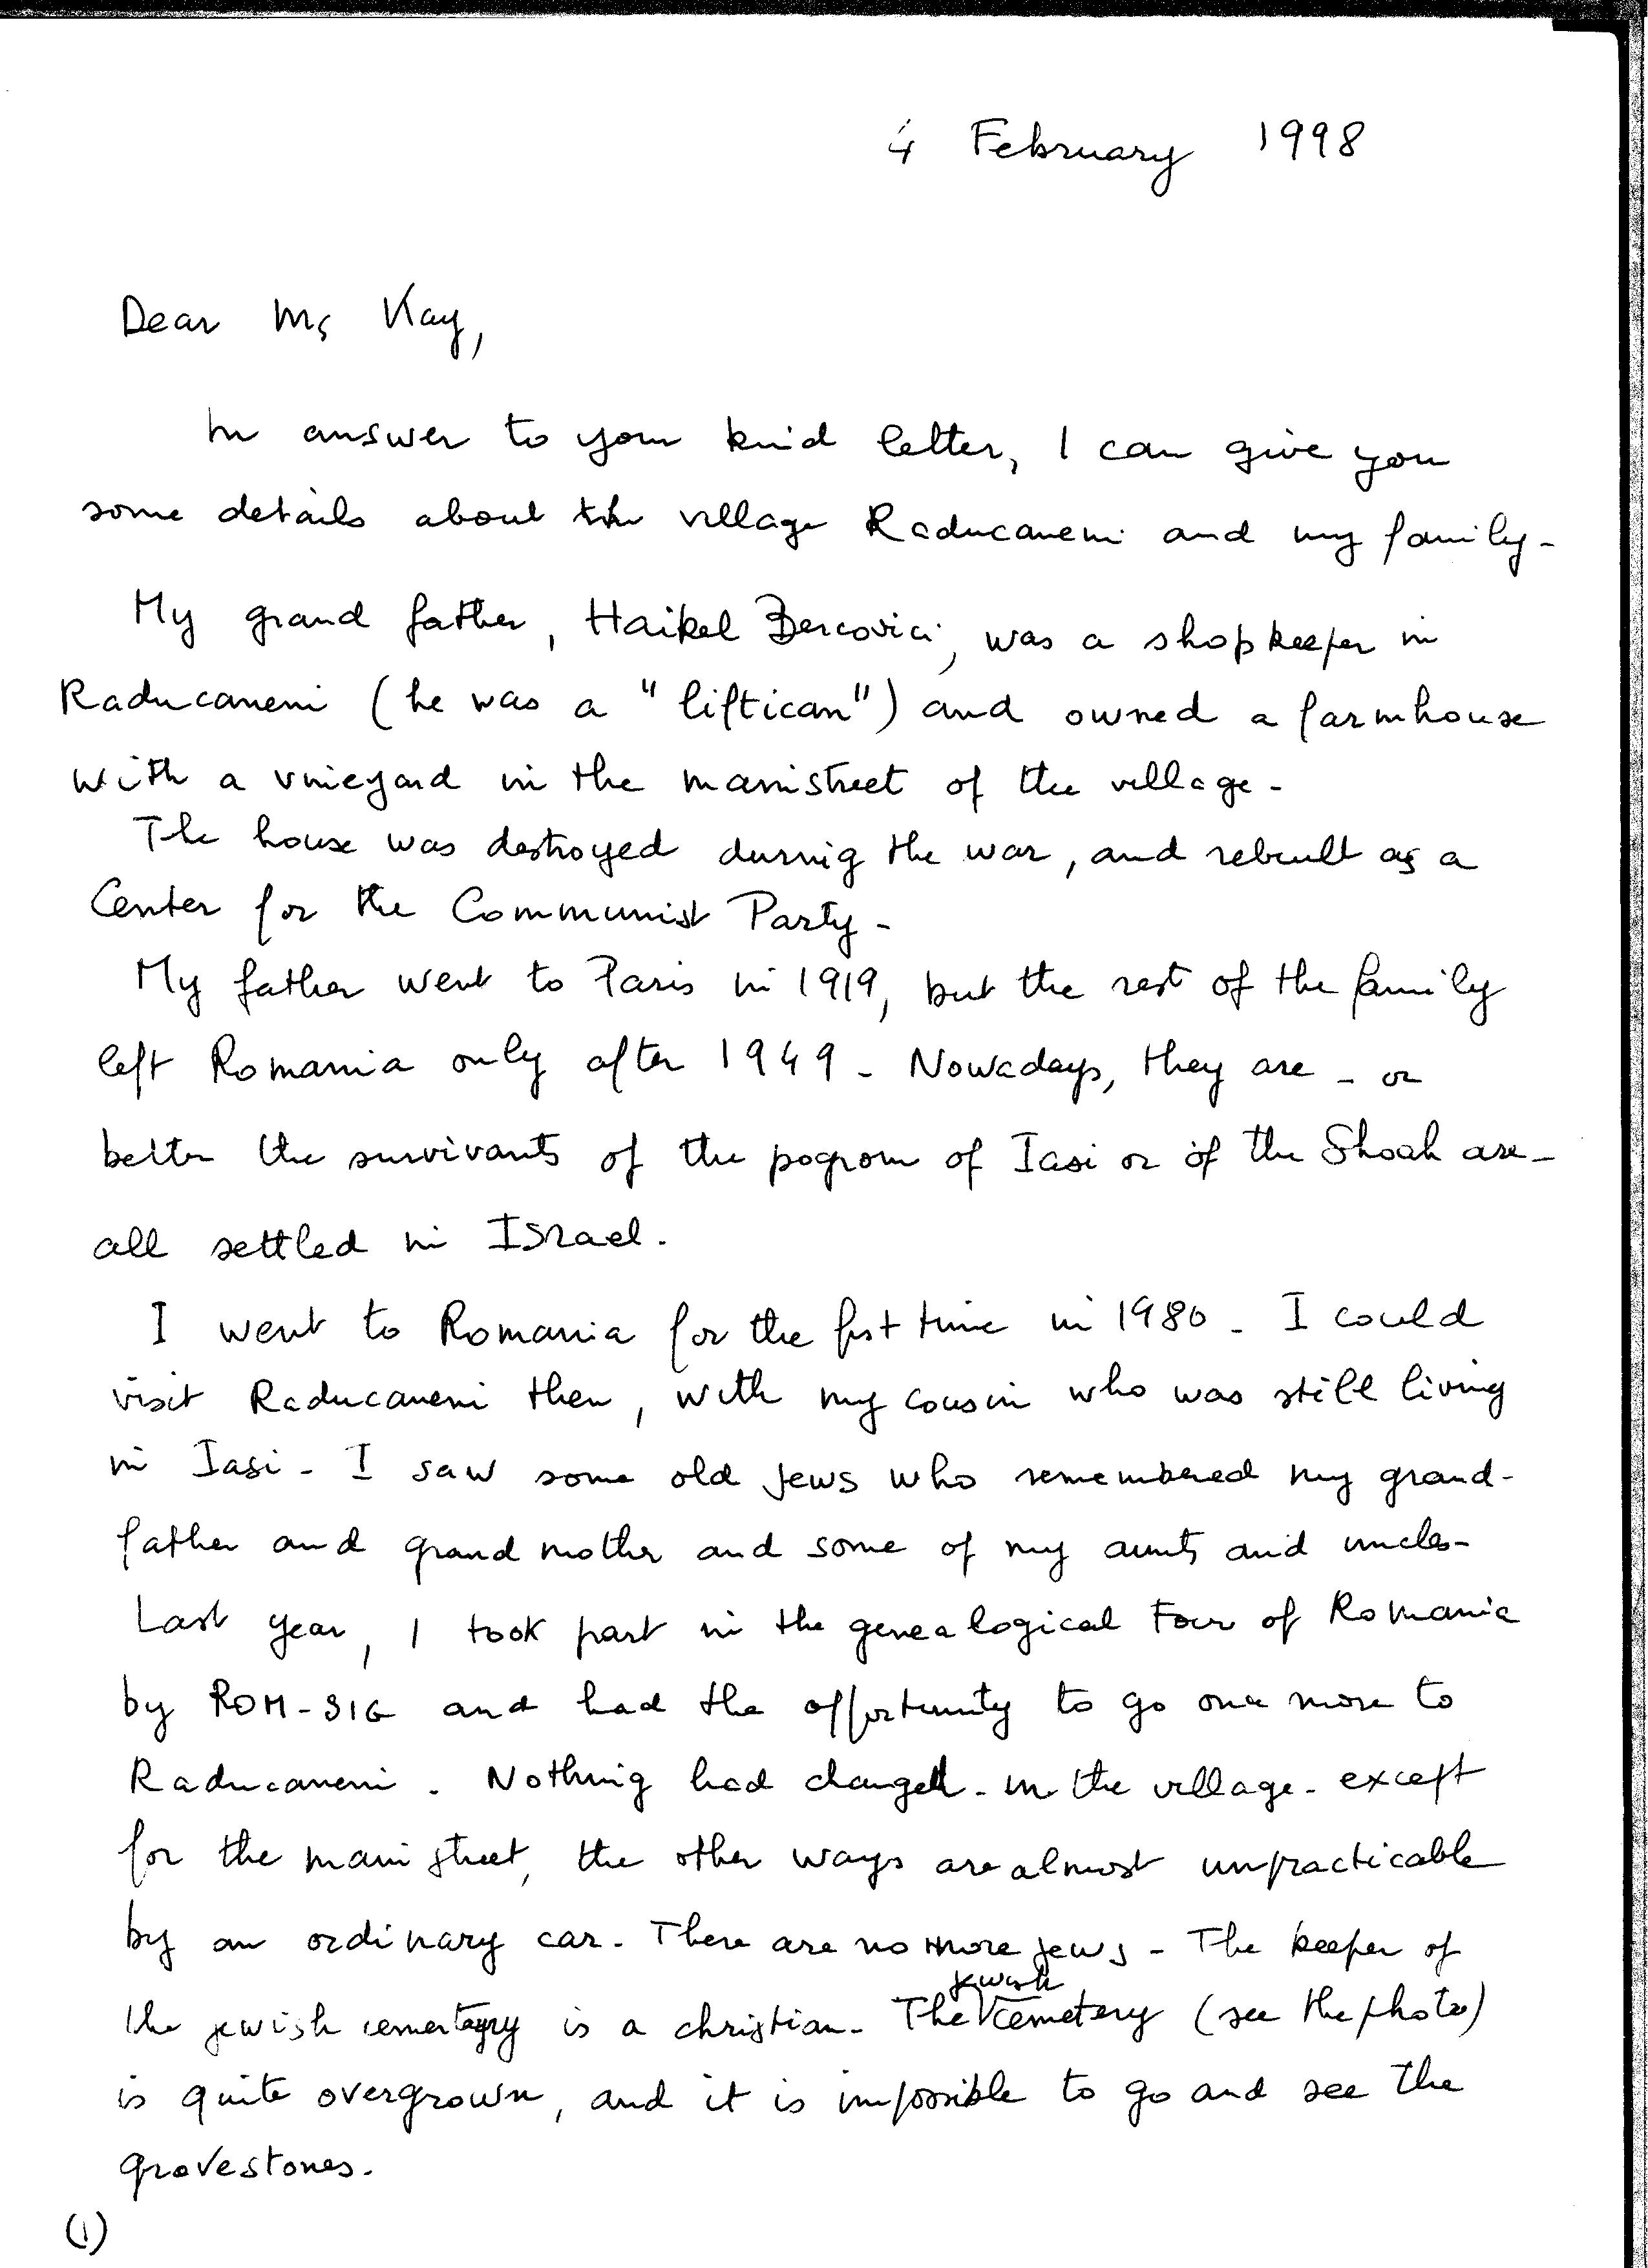 4 February 1998
Dear Ms Kay,
In answer to your kind letter, I can give you
some details about the village Raducaneni and my family -
My grand father, Haikel Bercovici, was a shopkeeper in
Raducaneni (he was a "liftican") and owned a farmhouse
with a vineyard in the mainstreet of the village -
The house was destroyed during the war, and rebuilt as a
Center for the Communist Party -
My father went to Paris in 1919, but the rest of the family
left Romania only after 1949 - Nowadays, they are - or
better the survivants of the pogrom of Iasi or of the Shoah are -
all settled in Israel.
I went to Romania for the fist time in 1980 - I could
visit Raducaneni then, with my cousin who was still living
in Iasi - I saw some old jews who remembered my grand-
father and grand mother and some of my aunts and uncles -
Last year, I took part in the genealogical Tour of Romania
by ROM-SIG and had the opportunity to go once more to
Raducaneni. Nothing had changed - in the village - except
for the main street, the other ways are almost unpracticable
by an ordinary car - There are no more jews - The keeper of
the jewish cemetery is a christian - The jewish cemetery (see the photo)
is quite overgrown, and it is impossible to go and see the
gravestones.
(1)